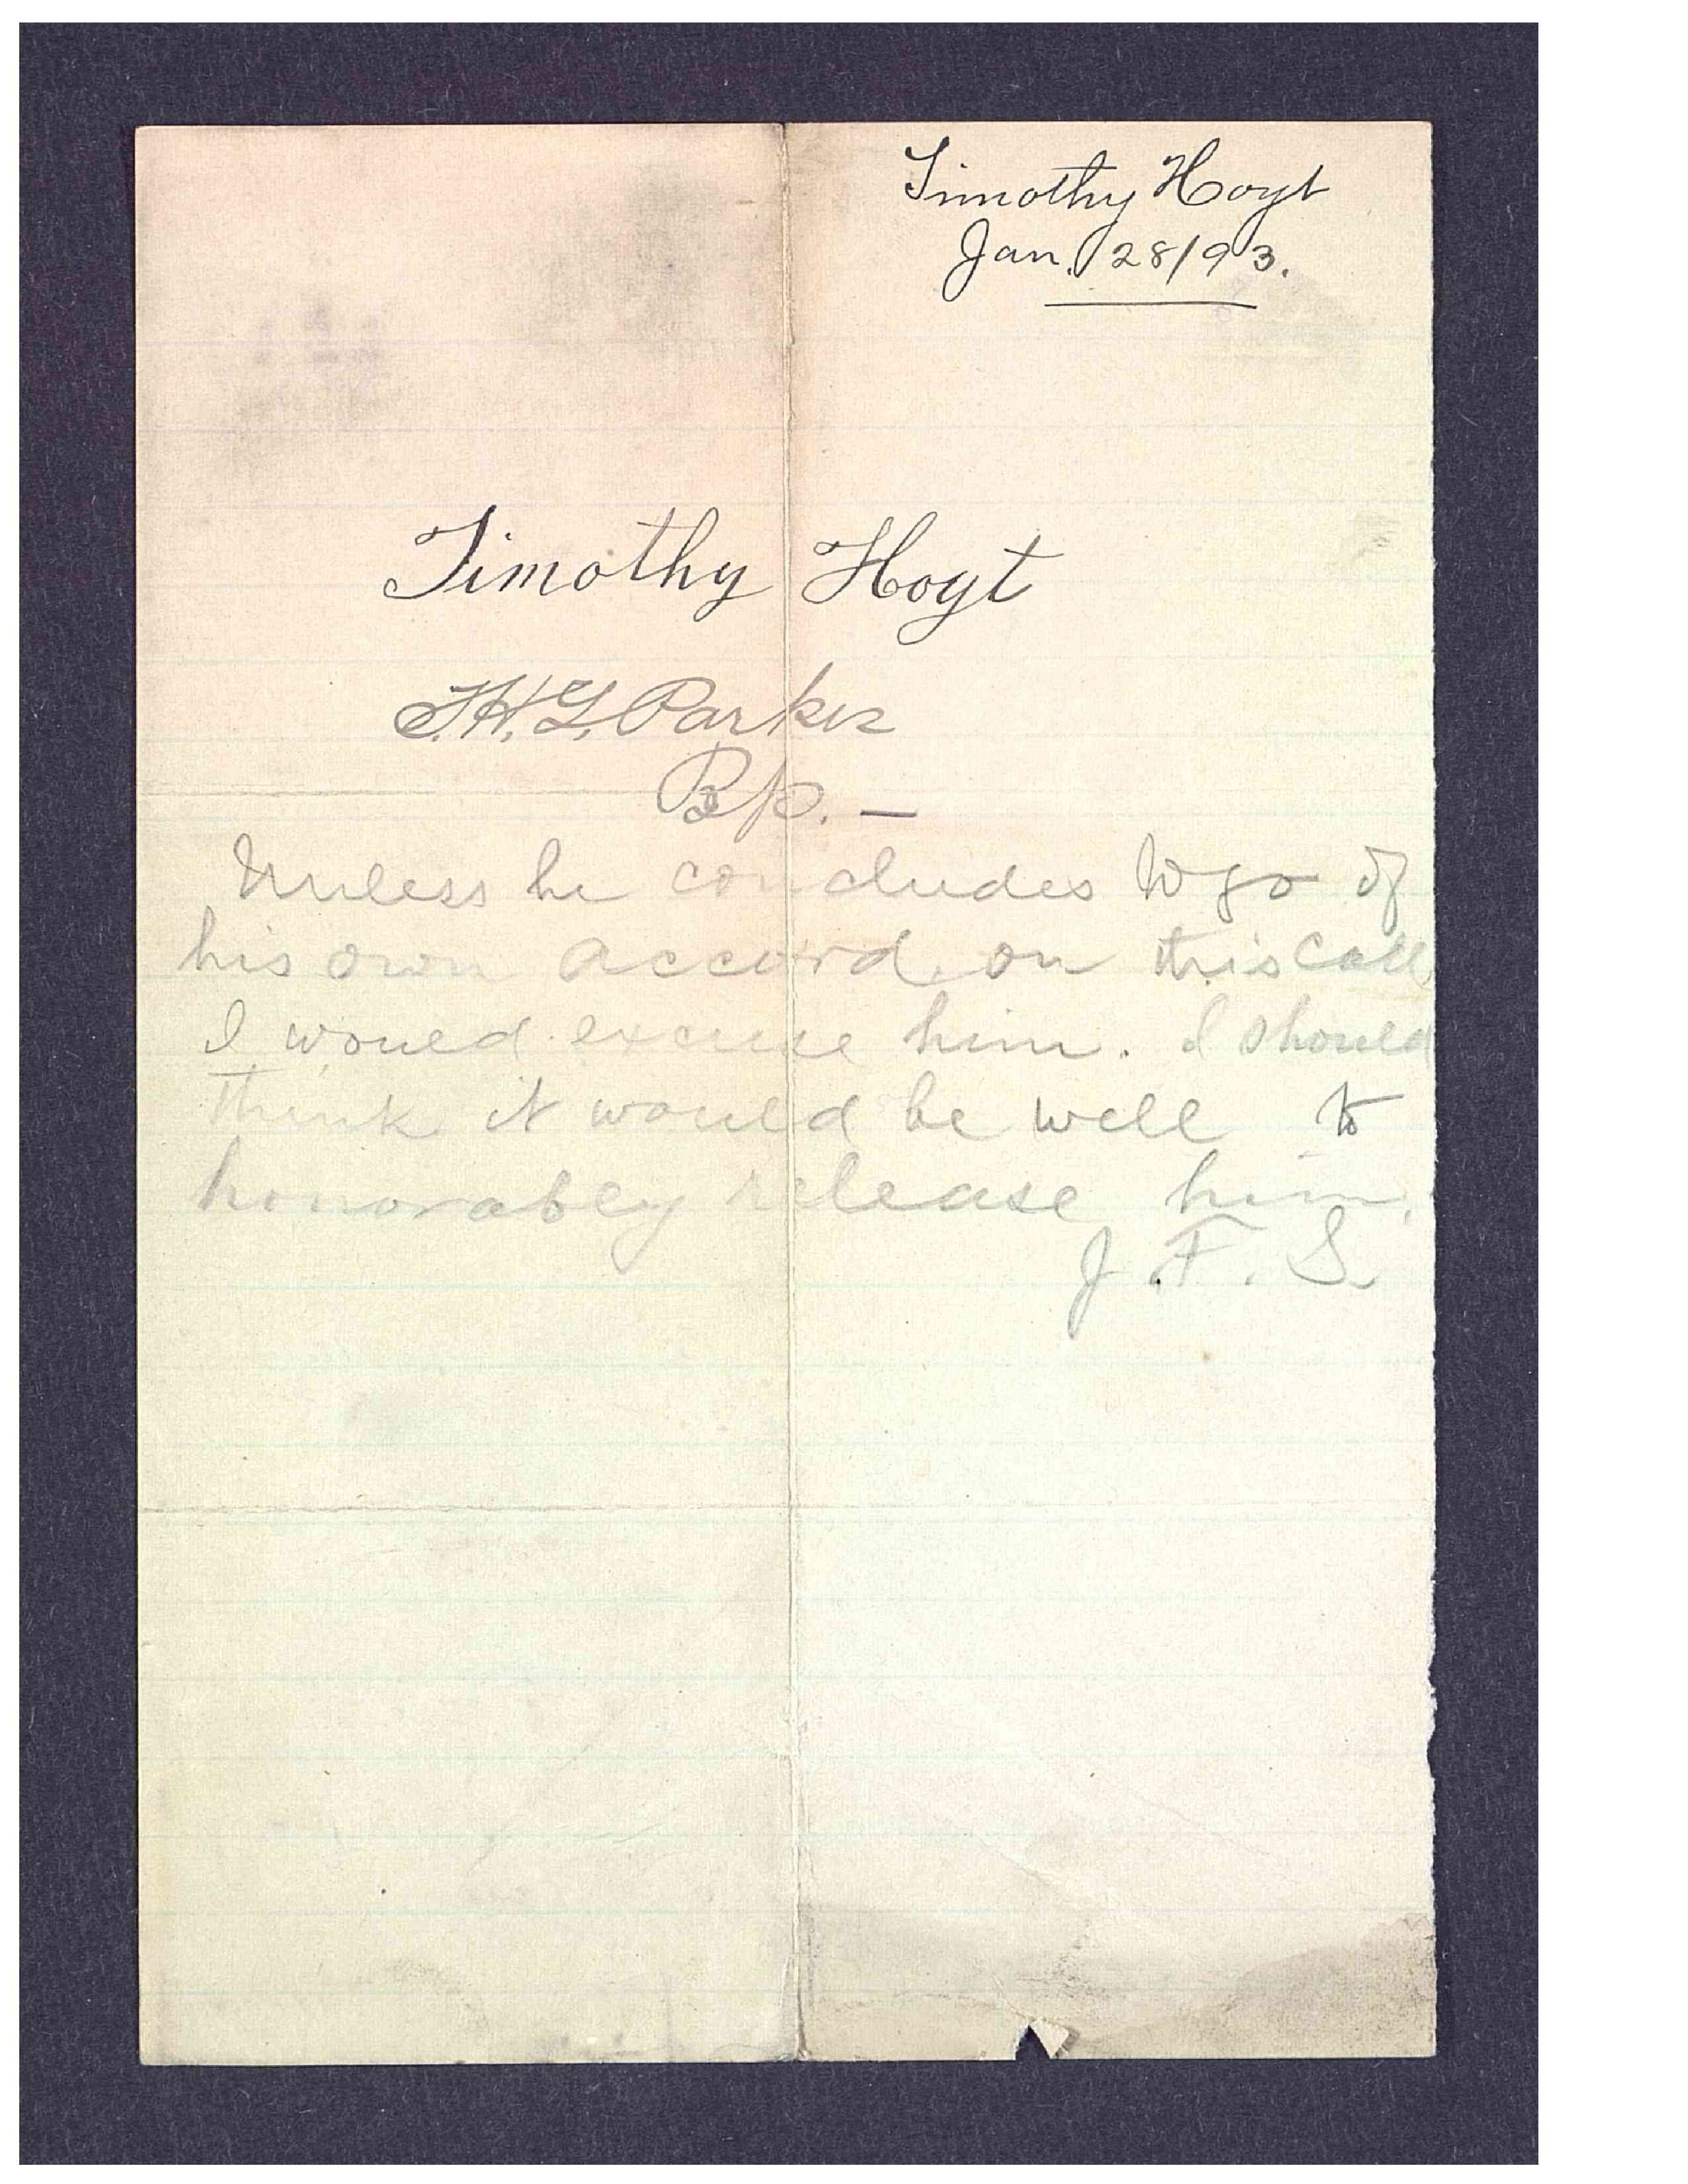 Timothy Hoyt
Jan. 28/93.
Timothy Hoyt
J.H.G. Parker
Bp. —
Unless he concludes to go of
his own accord, on this call
I would excuse him. I should
think it would be well to
honorably release him.
J. F. S.